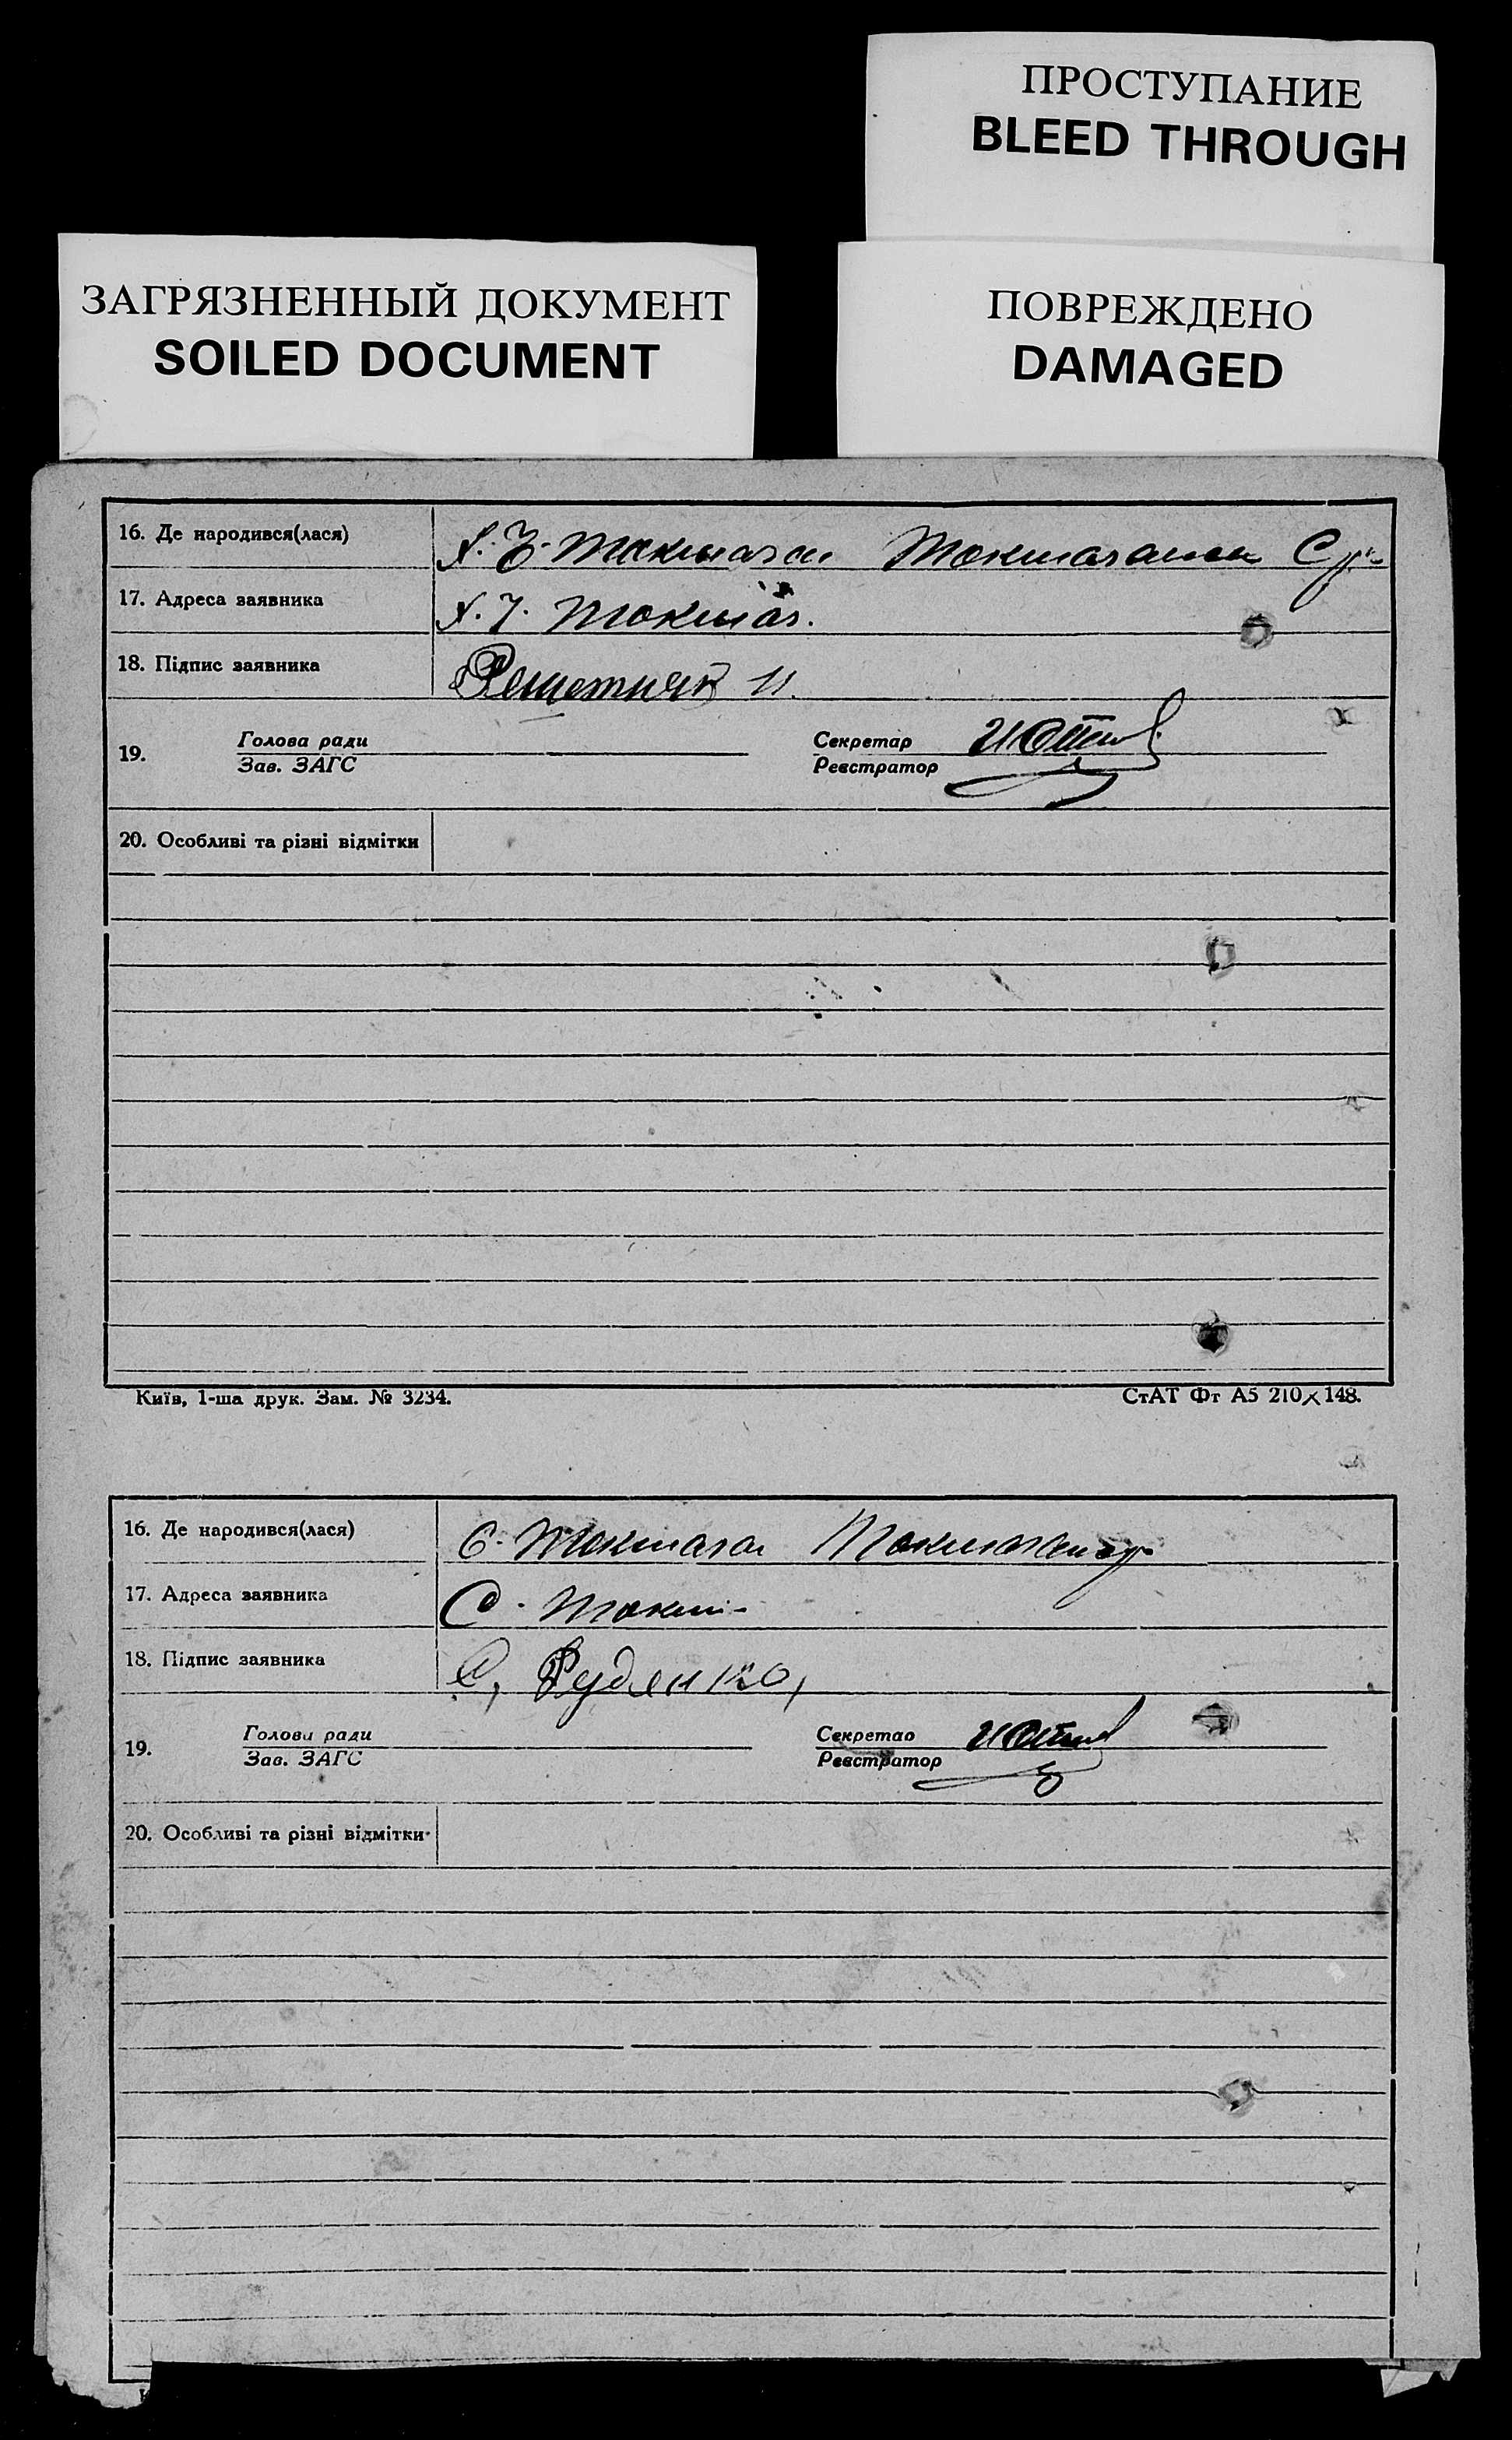 ПРОСТУПАНИЕ
BLEED THROUGH
ЗАГРЯЗНЕННЫЙ ДОКУМЕНТ
SOILED DOCUMENT
ПОВРЕЖДЕНО
DAMAGED
16. Де народився(лася)
17. Адреса заявника
18. Підпис заявника Решетняк И.
19. Голова ради Секретар
Зав. ЗАГС Реєстратор
20. Особливі та різні відмітки
Київ, 1-ша друк. Зам. № 3234. СтАТ Фт А5 210×148.
16. Де народився(лася)
17. Адреса заявника С. Токм-
18. Підпис заявника Руденко
19. Голова ради Секретар
Зав. ЗАГС Реєстратор
20. Особливі та різні відмітки